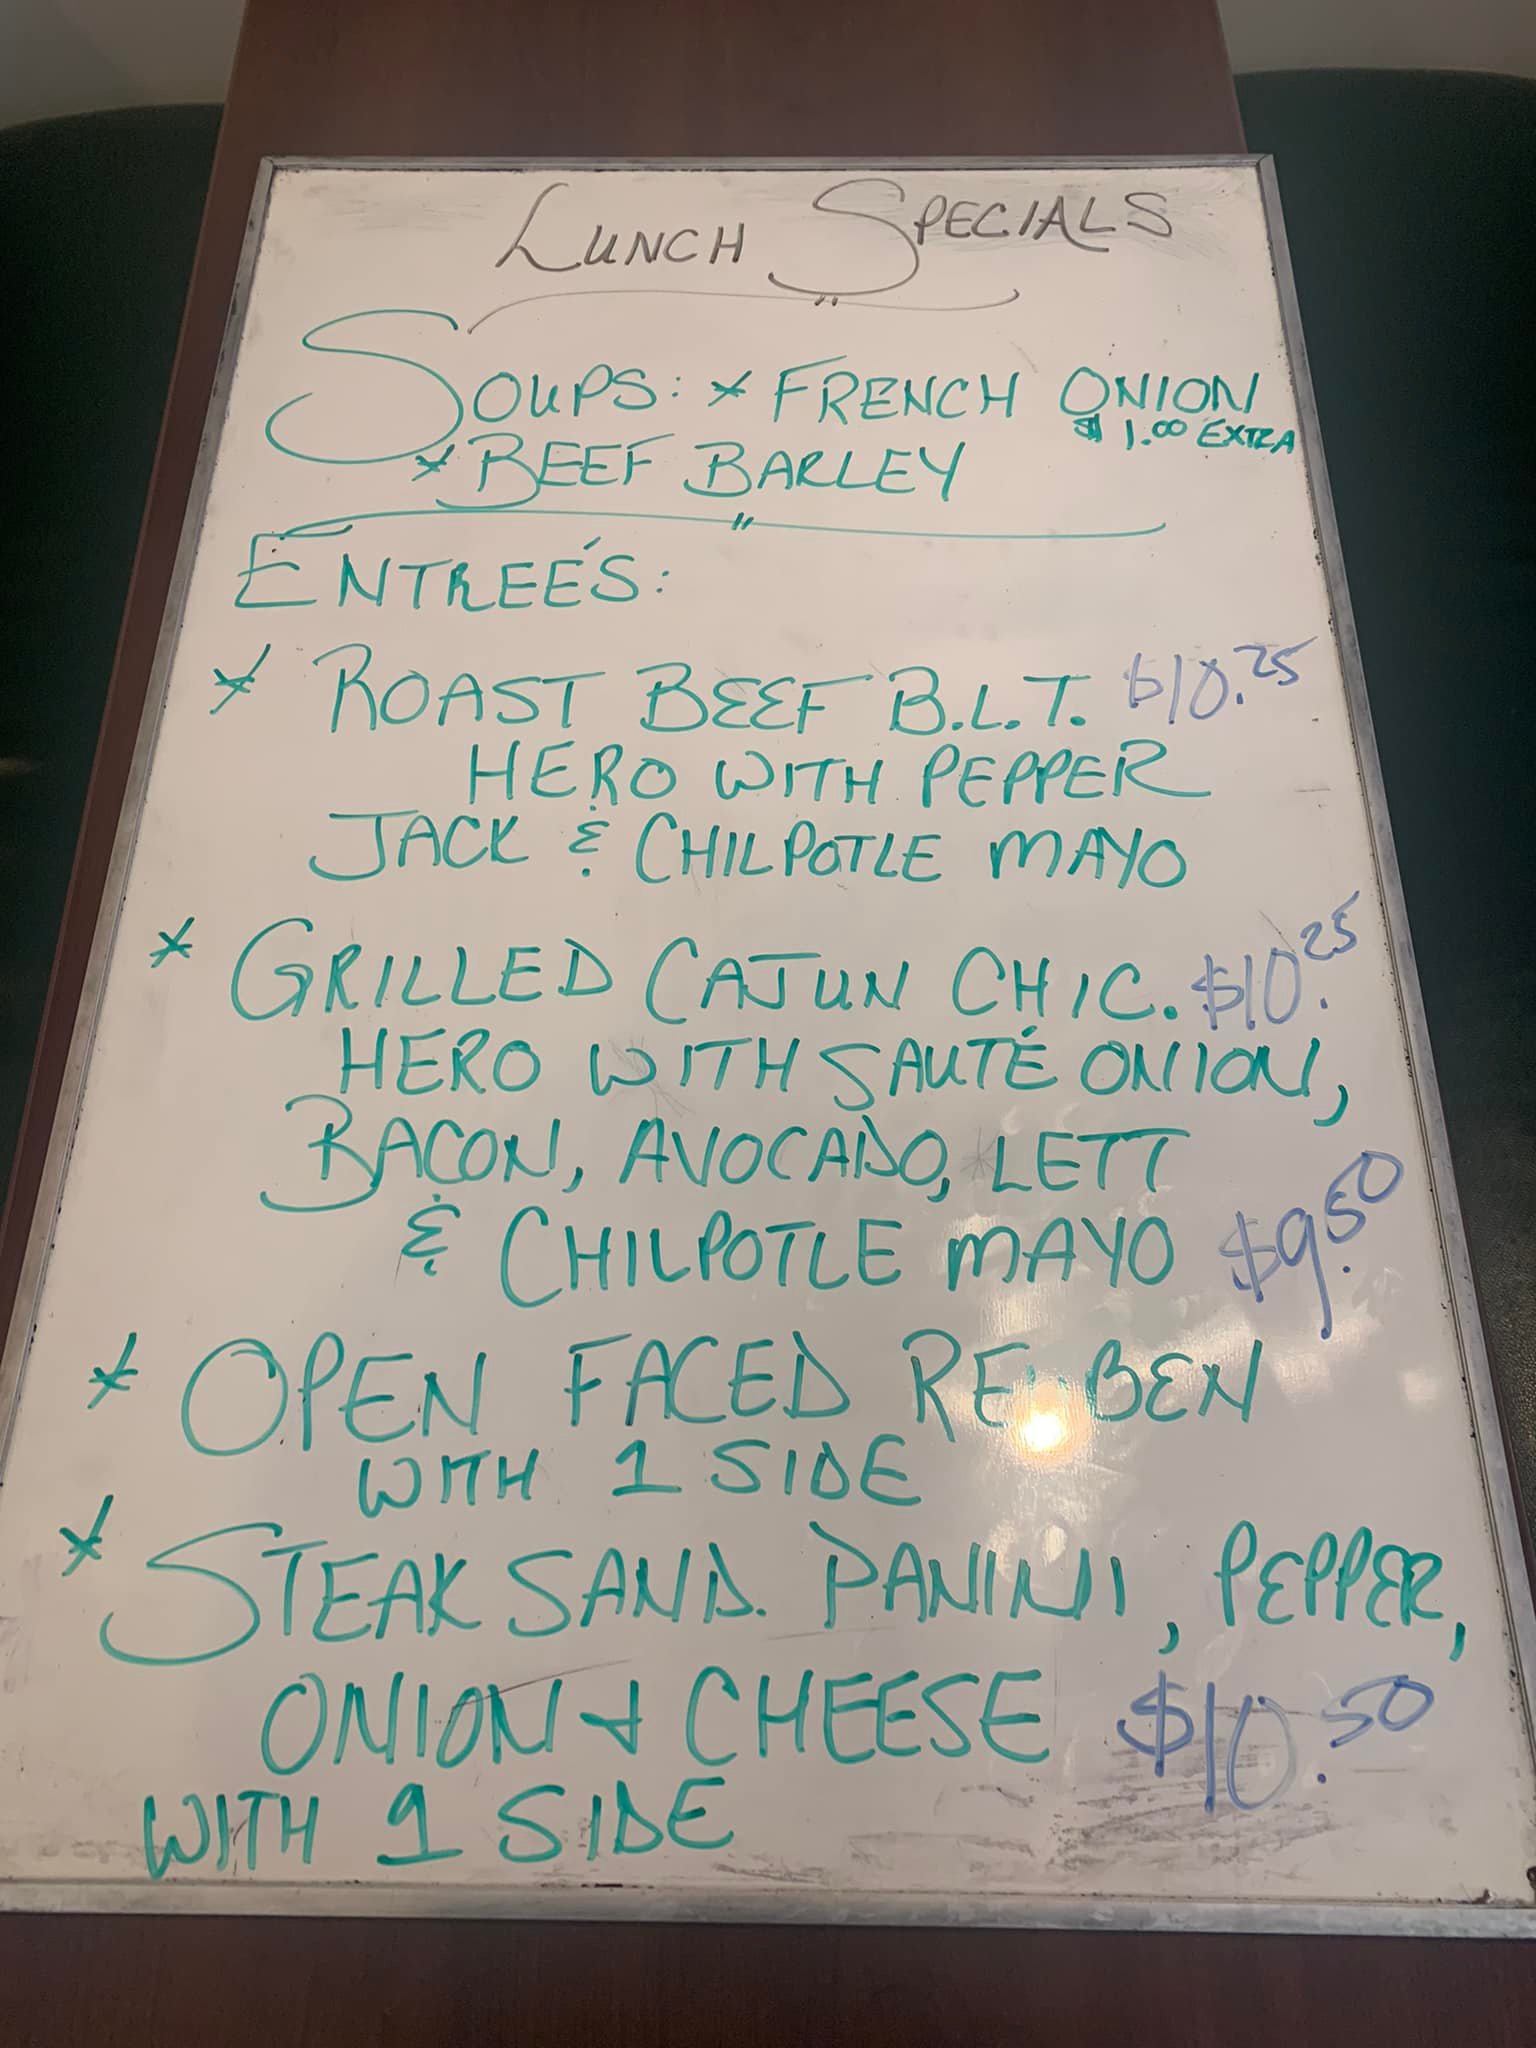 LUNCH SPECIALS
SOUPS: * FRENCH ONION
$1.00 EXTRA
* BEEF BARLEY
ENTREÉ'S:
* ROAST BEEF B.L.T. $10.25
HERO WITH PEPPER
JACK & CHILPOTLE MAYO
* GRILLED CAJUN CHIC. $10.25
HERO WITH SAUTÉ ONION,
BACON, AVOCADO, LETT
& CHILPOTLE MAYO $9.50
* OPEN FACED REUBEN
WITH 1 SIDE
* STEAK SAND. PANINI, PEPPER,
ONION & CHEESE $10.50
WITH 1 SIDE